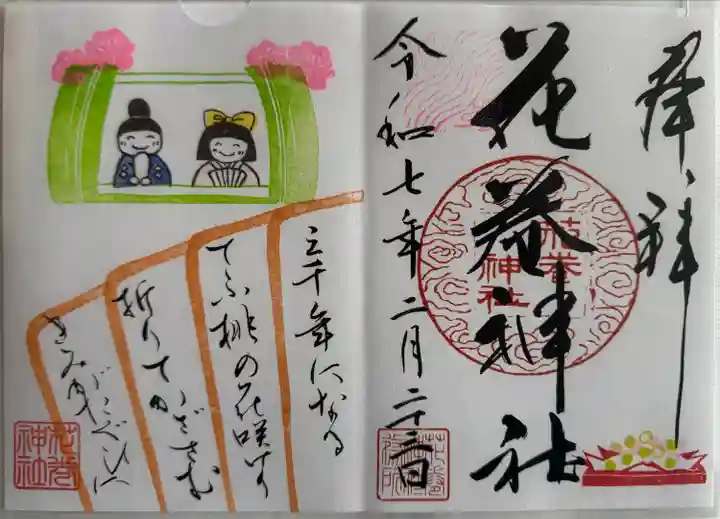 奉拝
花巻神社
令和七年二月二十三日
花巻
神社
三千年になる
てふ桃の花咲けり
折りてかざさむ
きみが
花巻
神社